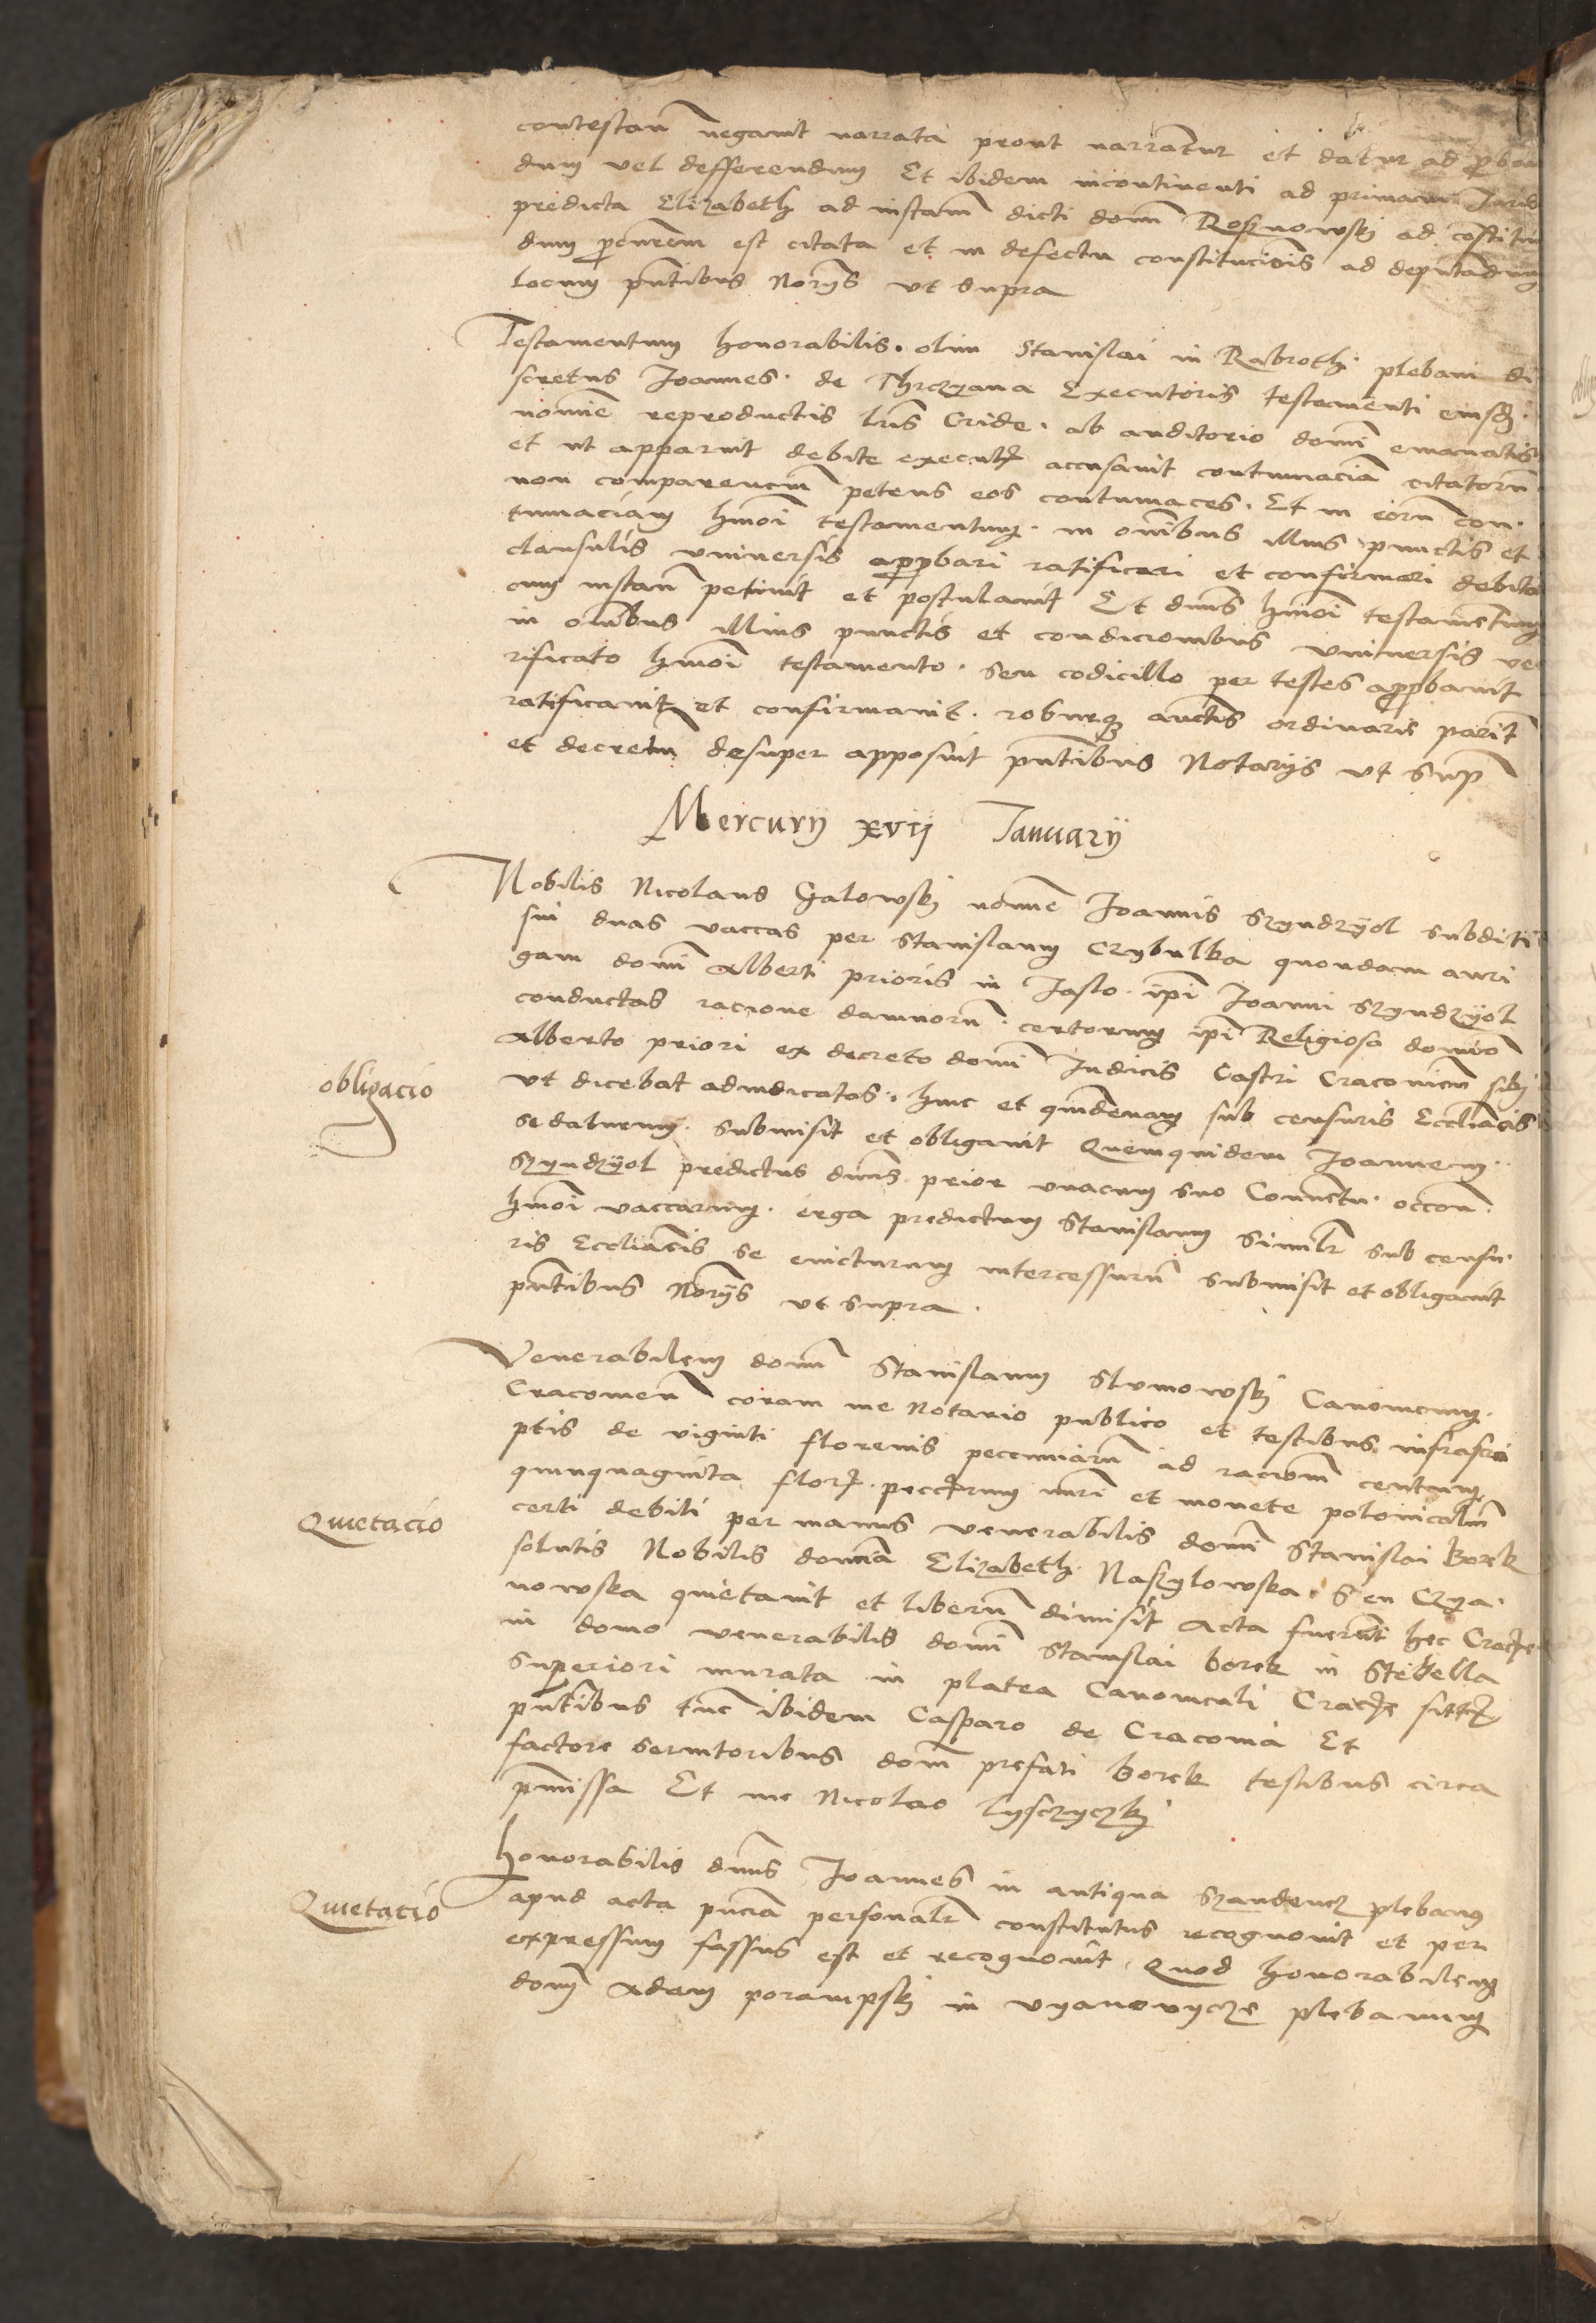 contestan negavit narrata prout narrantur et datur ad proban
dum vel defferendum Et ibidem incontinenti ad primam Iurid
predicta Elizabeth ad instam dicti domi Rosnowskj ad costituen
dum procurem est citata et in defectu constitucionis ad deputadum
locum pntibus Norijs ut supra
Testamentum honorabilis. olim Stanislai in Rabroth plebani di
scretus Ioannes. de Thrczyana Executoris testamenti eiusd.
nomie reproductis lris Cride. ab auditorio domi emanatis
et ut apparuit debite execut accusavit contumaciam citatorum
non comparencium petens eos contumaces. Et in eorum con.
tumaciam hmoi testamentum. in omibus illius punctis et
clausulis universis approbari ratificari et confirmari debita
cum instan petivit et postulavit Et dnus hmoi testamentum
in omibus illius punctis et condicionibus universis ve
rificato hmoi testamento. seu codicillo per testes approbavit
ratificavit et confirmavit. roburque auctis ordinarie parit
et decretum desuper apposuit pntibus Notarijs ut sup
Mercurij xvij Ianuarij
Nobilis Nicolaus Galowskj nomie Ioannis Szyndzyol subditi
sui duas vaccas per Stanislaum Czybulka quondam auri
gam domi Alberti prioris in Jaslo. ipi Ioanni Szyndzyol
conductas racione damnorum. certorum ipi Religioso domino
Alberto priori ex decreto domi Iudicis Castri Cracovien sibj
ut dicebat adiudicatas. hinc et quindenam sub censuris Eccliacis
se daturum. submisit et obligavit Quemquidem Ioannem.
Szyndzyol predictus dnus prior unacum suo Conventu. occon.
hmoi vaccarum. erga predictum Stanislaum similr sub censu.
ris Eccliacis se evicturum intercessurum submisit et obligavit
pntibus Norijs ut supra.
obligacio
Venerabilem domi Stanislaum Slomowskj Canonicum.
Cracovien coram me Notario publico et testibus infrascri
ptis de viginti florenis pecuniarum ad racionem centum
quinquaginta flor. peccurum nuri et monete polonicalium
certi debiti per manus venerabilis domi Stanislai Borek
solutis Nobilis domina Elizabeth Naszylowska. Seu Czya.
nowska quietavit et liberum dimisit Acta fuerunt hec Cracovie
in domo venerabilis domi Stanislai borek in Stubella
superiori murata in platea Canonicali Cracovie sitta
pntibus tunc ibidem Casparo de Cracovia Et
factore servitoribus domi prefati borek testibus circa
pmissa Et me Nicolao Lyschyczkj
Quietacio
Honorabilis dnus Ioannes in antiqua Szandencz plebanus
apud acta pncia personalr constitutus recognovit et per
expressum fassus est et recognovit. Quod honorabilem
dom Adam porampskj in Uyanovycze plebanum
Quietacio